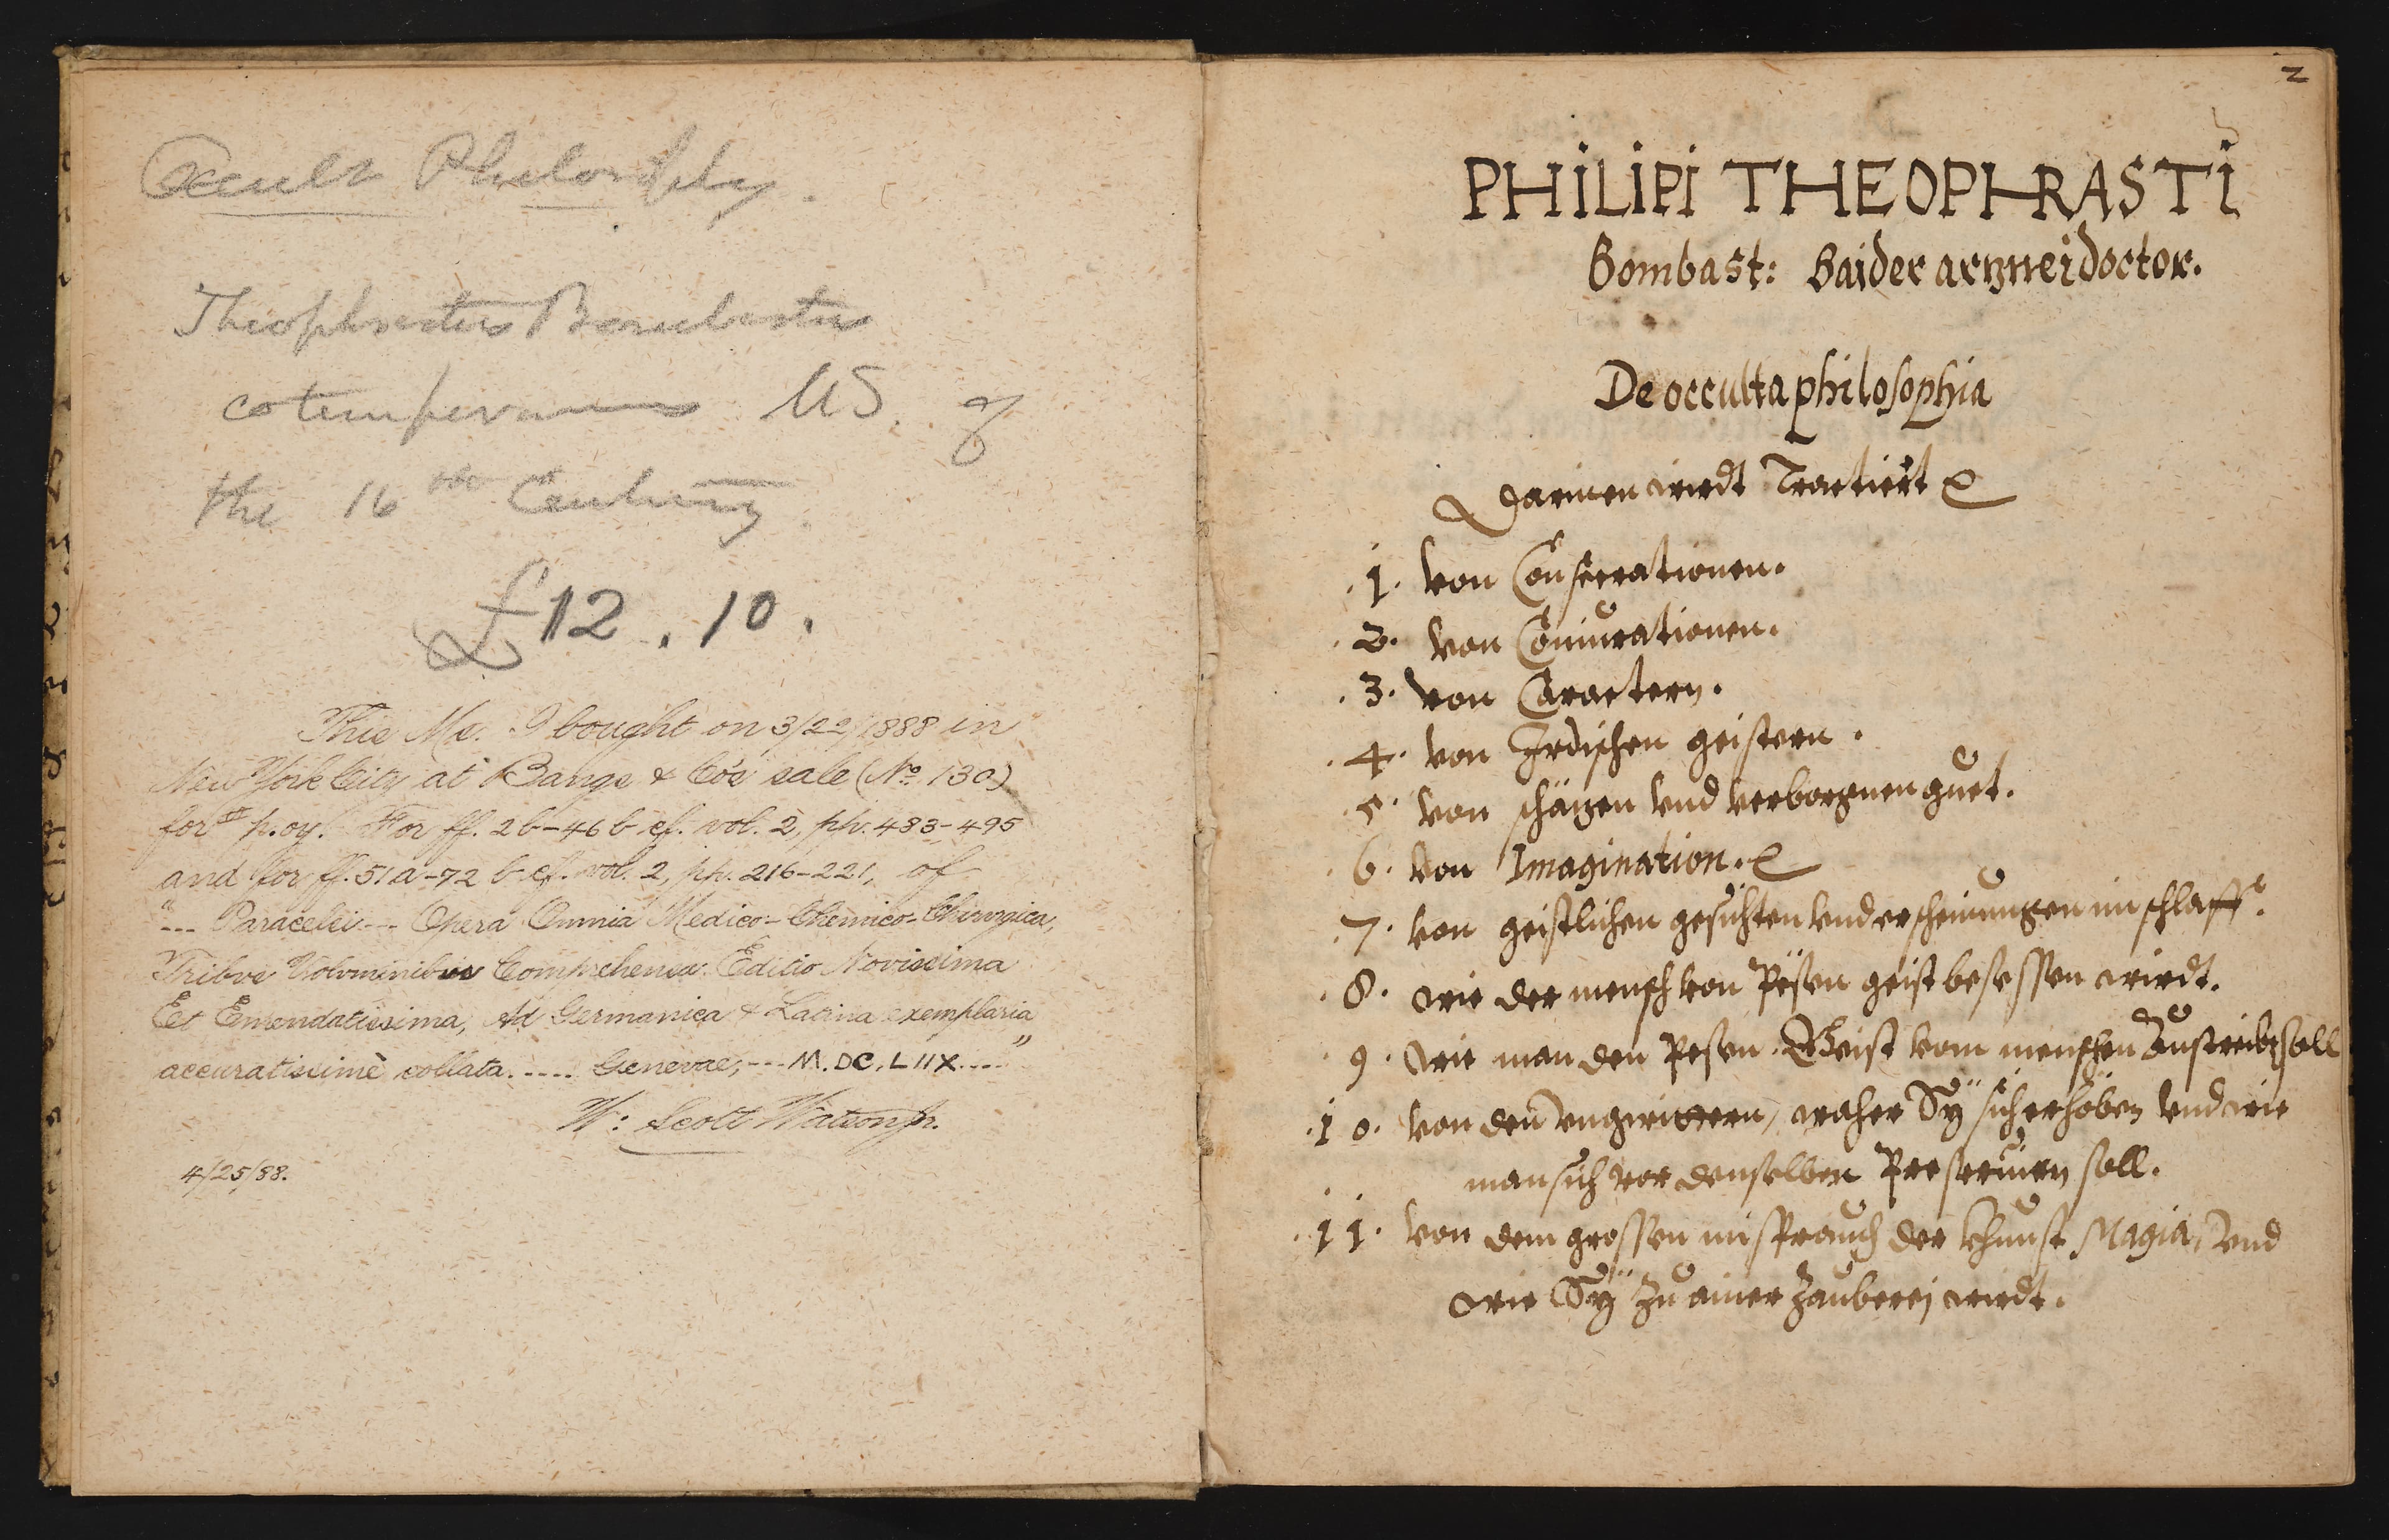 Occult Philosophy.
Theophrastus Bombastus
cotemporaneous MS. of
the 16th Century.
£12.10.
This Ms. I bought on 3/22/1888 in
New York City at Bangs & Co's sale (No. 130)
for $ p.oy. For ff. 2b-46b cf. vol. 2, pp. 483-495
and for ff. 51a-72b cf. vol. 2, pp. 216-221, of
"--- Paracelsi --- Opera Omnia Medico-Chemico-Chirvrgica,
Tribvs Volvminibus Comprehensa. Editio Novissima
Et Emendatissima, Ad Germanica & Latina exemplaria
accuratissimè collata. .... Genevae, --- M.DC.LIIX...."
W: Scott Watson jr.
4/25/88.
2
PHiLiPi THEOPHRASTi
Bombast: Baider arznei doctor.
De occulta philosophia
Darinen wirdt Tractiert
.1. von Consecrationen.
.2. von Coniurationen.
.3. von Caractern.
.4. von Irdischen geistern.
.5. von schäzen vnd verborgnen guet.
.6. von Imagination.
.7. von geistlichen gesichten vnd erscheinungen im schlaff.
.8. wie der mensch von Pösen geist besessen wirdt.
.9. wie man den Pesen Geist vom menschen austreiben soll
.10. von den vngwittern, waher Sÿ sich erhöben vnd wie
man sich vor denselben Preseruiern soll.
.11. von dem grossen misprauch der khunst Magia, vnd
wie Sÿ zu ainer Zauberej wirdt.